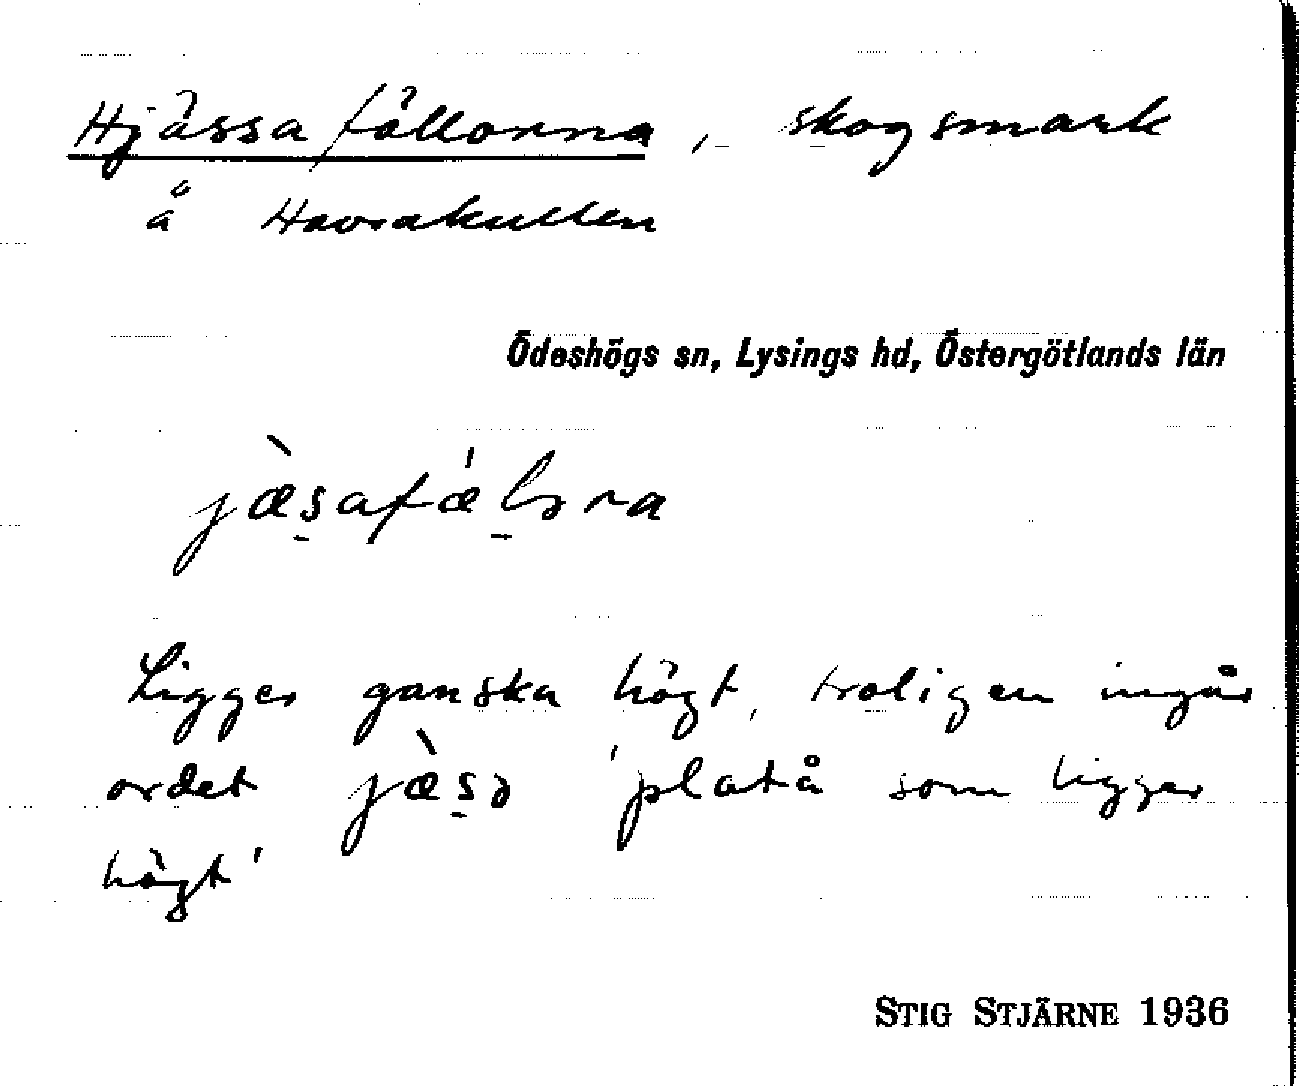 Hjässafällorna, skogsmark
å Havrakullen
Ödeshögs sn, Lysings hd, Östergötlands län
jæ̀s̠afǽl̠ɔra
Ligger ganska högt, troligen ingår
ordet jæ̀s̠ə 'platå som ligger
högt'
STIG STJÄRNE 1936